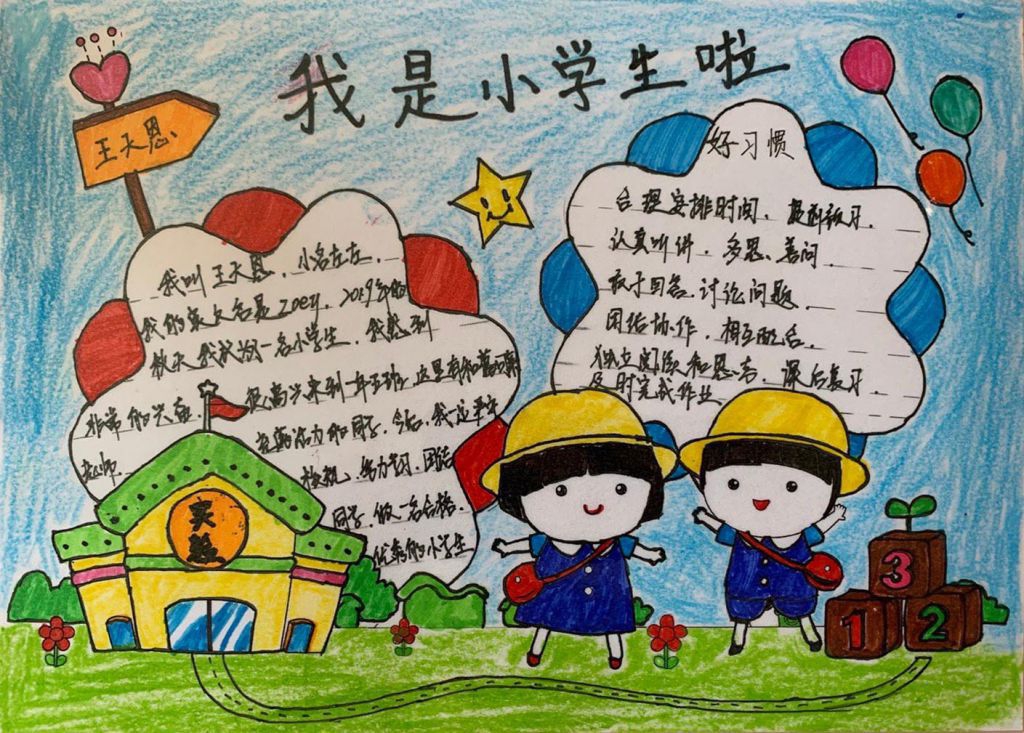 我是小学生啦
王天恩
我叫王天恩、小名左左、
我的英文名是Zoey、2019年的
秋天我成为一名小学生、我感到
非常的兴奋 很高兴来到一年五班、这里有和蔼可亲
老师、 充满活力的同学、今后、我一定遵守
校规、努力学习、团结
同学、做一名合格、
优秀的小学生
实验
好习惯
合理安排时间、提前预习、
认真听讲、多思、善问、
敢于回答、讨论问题、
团结协作、相互配合、
独立阅读和思考、课后复习、
及时完成作业
3
1 2